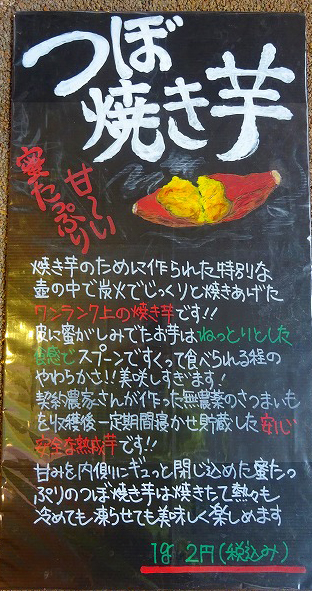 つぼ
焼き芋
甘〜い
蜜たっぷり
焼き芋のために作られた特別な
壺の中で炭火でじっくりと焼きあげた
ワンランク上の焼き芋です!!
皮に蜜がしみでたお芋はねっとりとした
食感でスプーンですくって食べられる程の
やわらかさ!!美味しすぎます!
契約農家さんが作った無農薬のさつまいも
を収穫後一定期間寝かせ貯蔵した安心
安全な熟成芋です!!
甘みを内側にギュっと閉じ込めた蜜たっ
ぷりのつぼ焼き芋は焼きたて熱々も
冷めても凍らせても美味しく楽しめます
1g 2円(税込み)